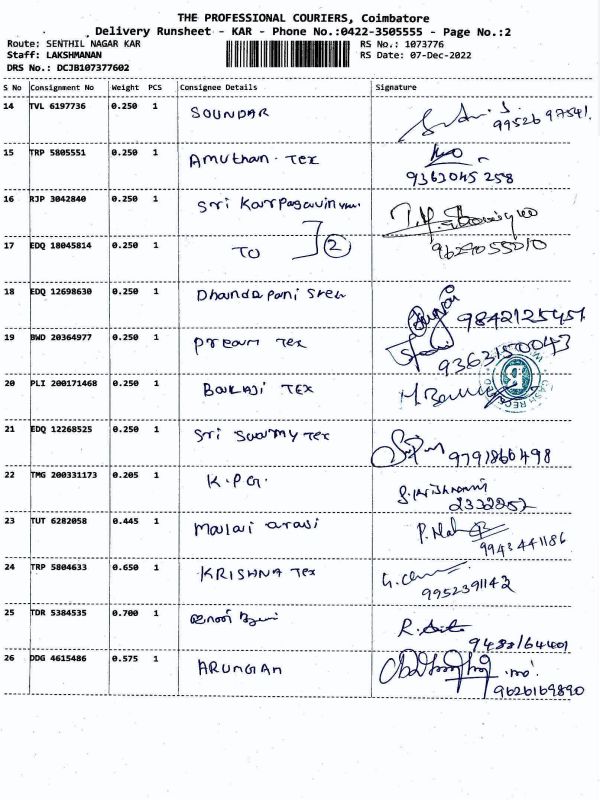 THE PROFESSIONAL COURIERS, Coimbatore
Delivery Runsheet - KAR - Phone No.:0422-3505555 - Page No.:2
Route: SENTHIL NAGAR KAR RS No.: 1073776
Staff: LAKSHMANAN RS Date: 07-Dec-2022
DRS No.: DCJB107377602
S No Consignment No Weight PCS Consignee Details Signature
14 TVL 6197736 0.250 1 SOUNDAR
9952697541
15 TRP 5805551 0.250 1 Amuthan Tex
9363045258
16 RJP 3042840 0.250 1 Sri
17 EDQ 18045814 0.250 1 TO 2
9629055010
18 EDQ 12698630 0.250 1 Dhandapani
9842125451
19 BWD 20364977 0.250 1 Tex
9363150043
20 PLI 200171468 0.250 1 BALAJI TEX
21 EDQ 12268525 0.250 1 Sri Swamy Tex
9791860498
22 TMG 200331173 0.205 1 K.P.G.
2332252
23 TUT 6282058 0.445 1 Malai arasi
9943441186
24 TRP 5804633 0.650 1 KRISHNA Tex
9952391142
25 TDR 5384535 0.700 1
26 DDG 4615486 0.575 1 ARUNGAN
9626169890